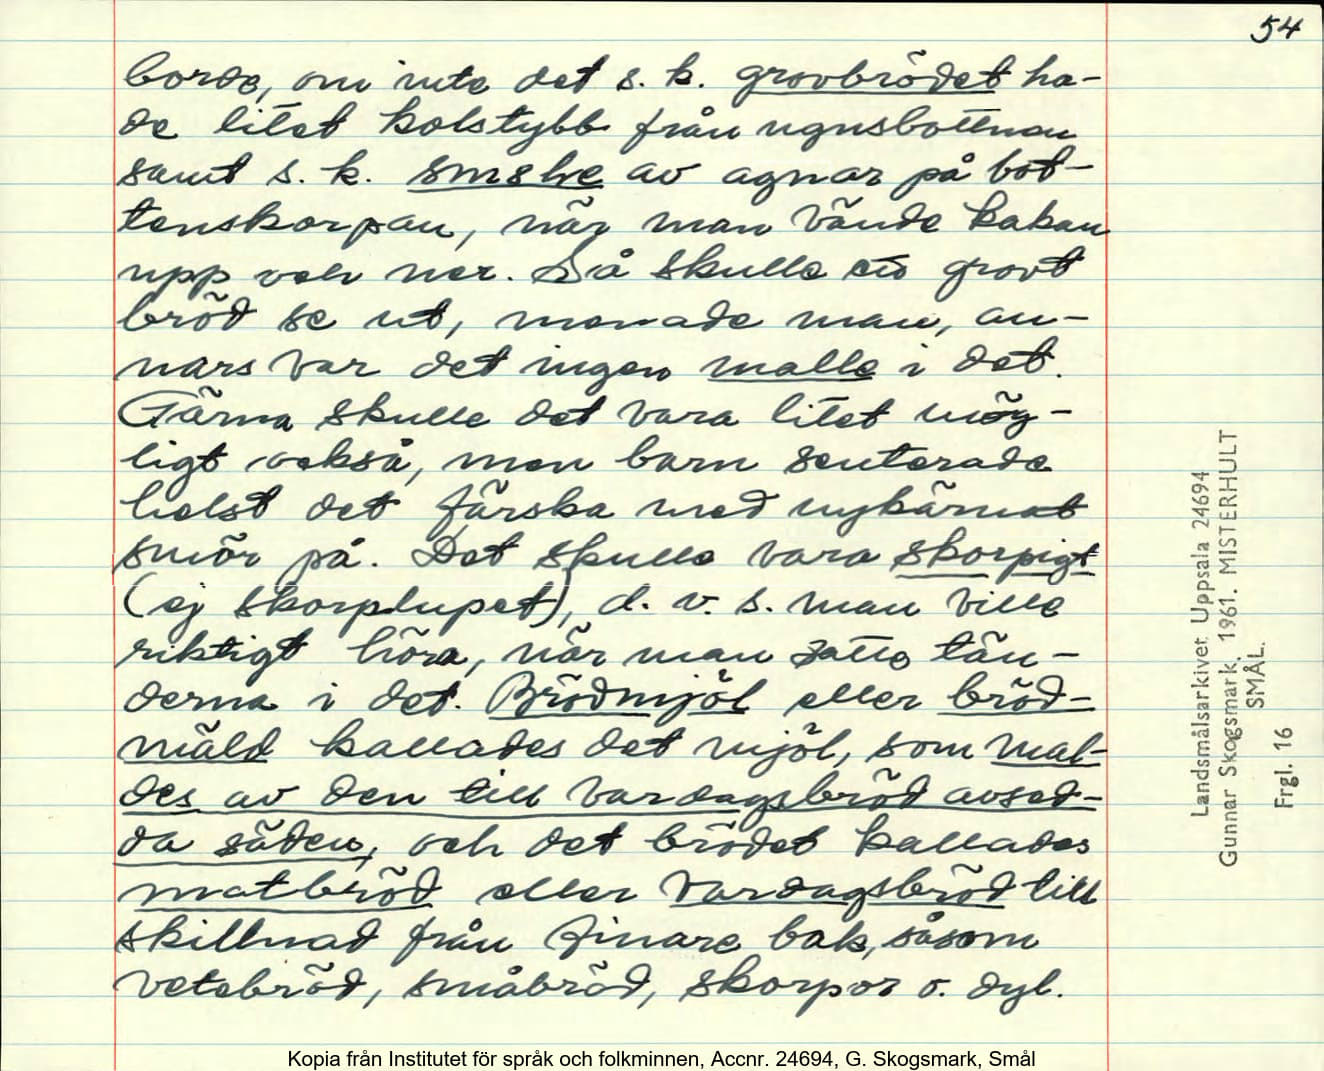 54
borde, om inte det s. k. grovbrödet ha-
de litet kolstybb från ugnsbottnen
samt s. k. smske av agnar på bot-
tenskorpan, när man vände kakan
upp och ner. Så skulle ett grovt
bröd se ut, menade man, an-
nars var det ingen malle i det.
Gärna skulle det vara litet mög-
ligt också, men barn senterade
helst det färska med nykärnat
smör på. Det skulle vara skorpigt
(ej skorplupet), d. v. s. man ville
riktigt höra, när man satte tän-
derna i det. Brödmjöl eller bröd-
mäld kallades det mjöl, som mal-
des av den till vardagsbröd avsed-
da säden, och det brödet kallades
matbröd eller vardagsbröd till
skillnad från finare bak, såsom
vetebröd, småbröd, skorpor o. dyl.
Landsmålsarkivet Uppsala 24694
Gunnar Skogsmark. 1961. MISTERHULT
SMÅL.
Frgl. 16
Kopia från Institutet för språk och folkminnen, Accnr. 24694, G. Skogsmark, Smål